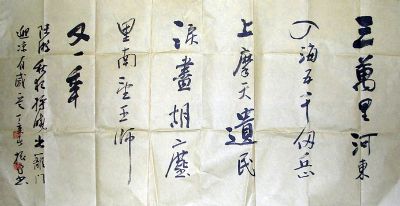 三萬里河東
入海五千仞岳
上摩天遺民
淚盡胡塵
里南望王師
又一年
陸游秋夜將曉出籬門
迎凉有感 書